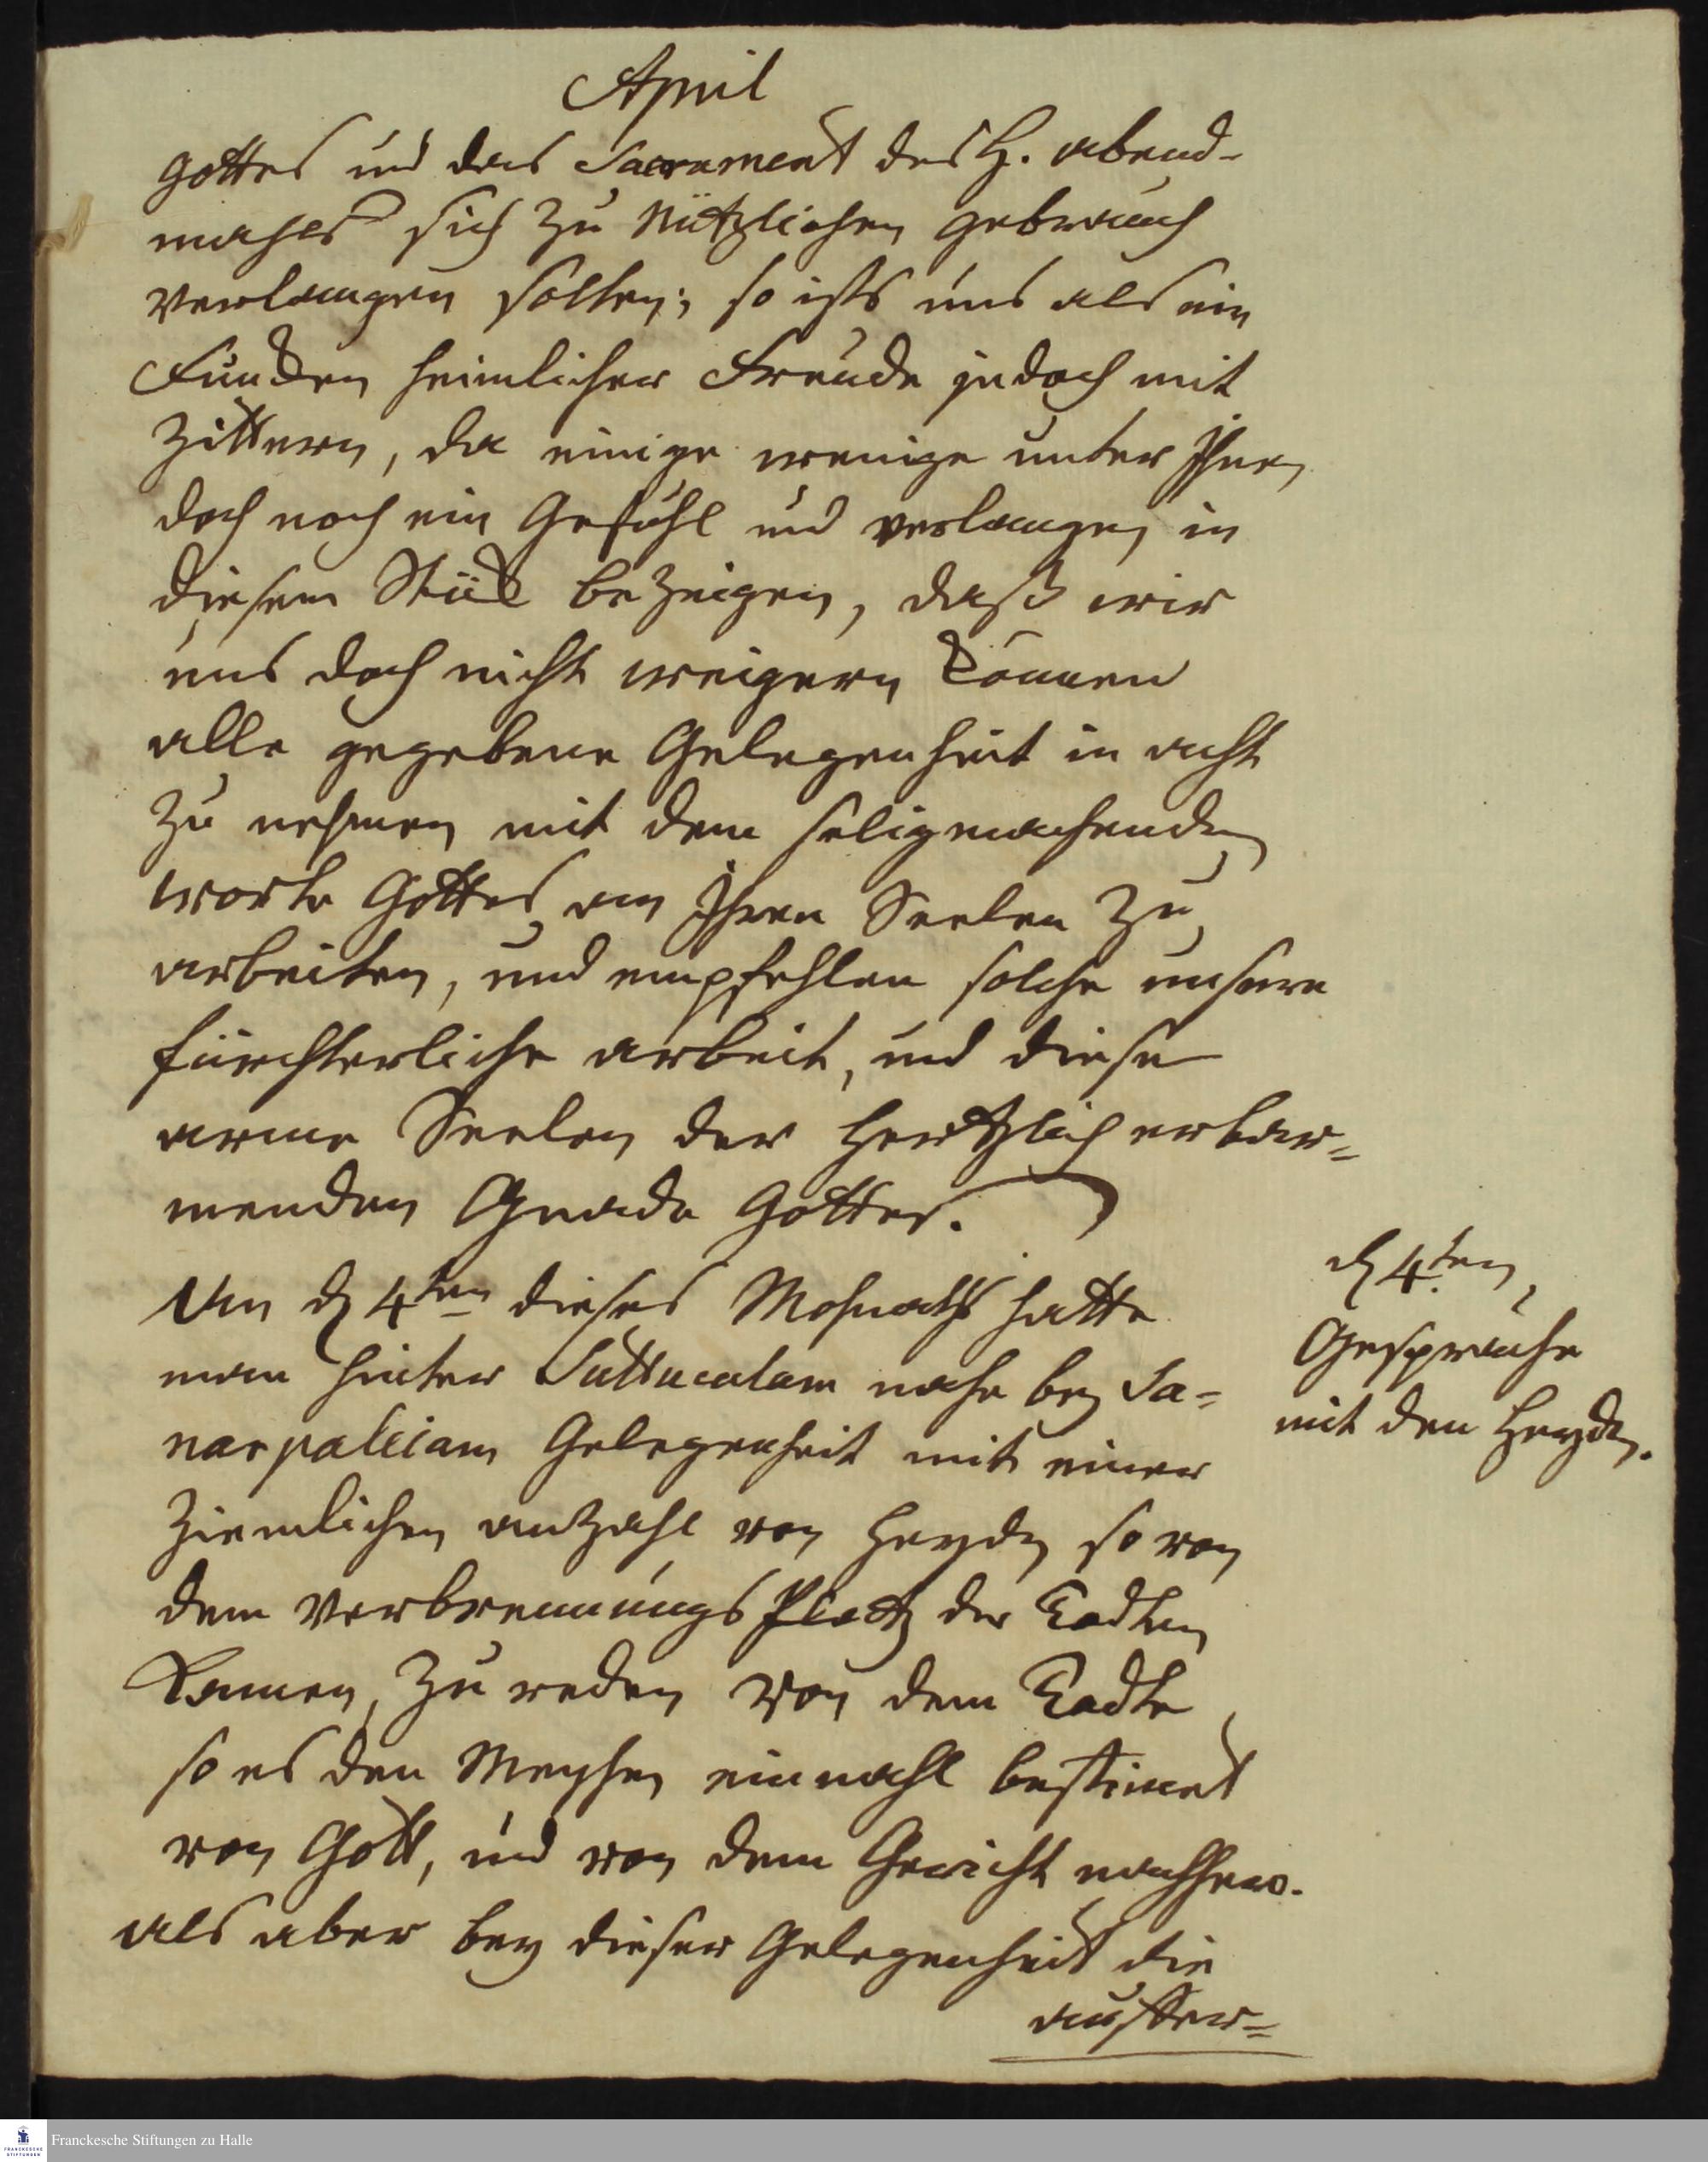 April
gottes und das Sacrament des H. abend-
mahls sich zu Nützlichen gebrauch
verlangen solten; so ists uns als ein
Funcken heimlicher Freude jedoch mit
Zittern, da einige wenige unter Ihnen
doch noch ein Gefühl und verlangen in
diesem Stück bezeigen, daß wir
uns doch nicht weigern können
alle gegebene Gelegenheit in acht
zu nehmen mit dem seligmachenden
worte Gottes an Ihren Seelen zu
arbeiten, und empfehlen solche unsere
fürchterliche arbeit, und diese
arme Seelen der Hertzlich erbar=
menden Gnade Gottes.
den 4ten dieses Mohnaths hatte
man hinter Suttucalam nahe bey Sa=
narpaleiam Gelegenheit mit einer
Ziemlichen anzahl von Heyden so von
dem Verbrennungs Platz der Todten
kamen, zu reden von dem Todte
so es den Menschen einmahl bestimet
von Gott, und von dem Gericht nachher.
als aber bey dieser Gelegenheit die
ausser=
d 4.ten
Gespräche
mit den Heyden.
Franckesche Stiftungen zu Halle
FRANCKESCHE
STIFTUNGEN